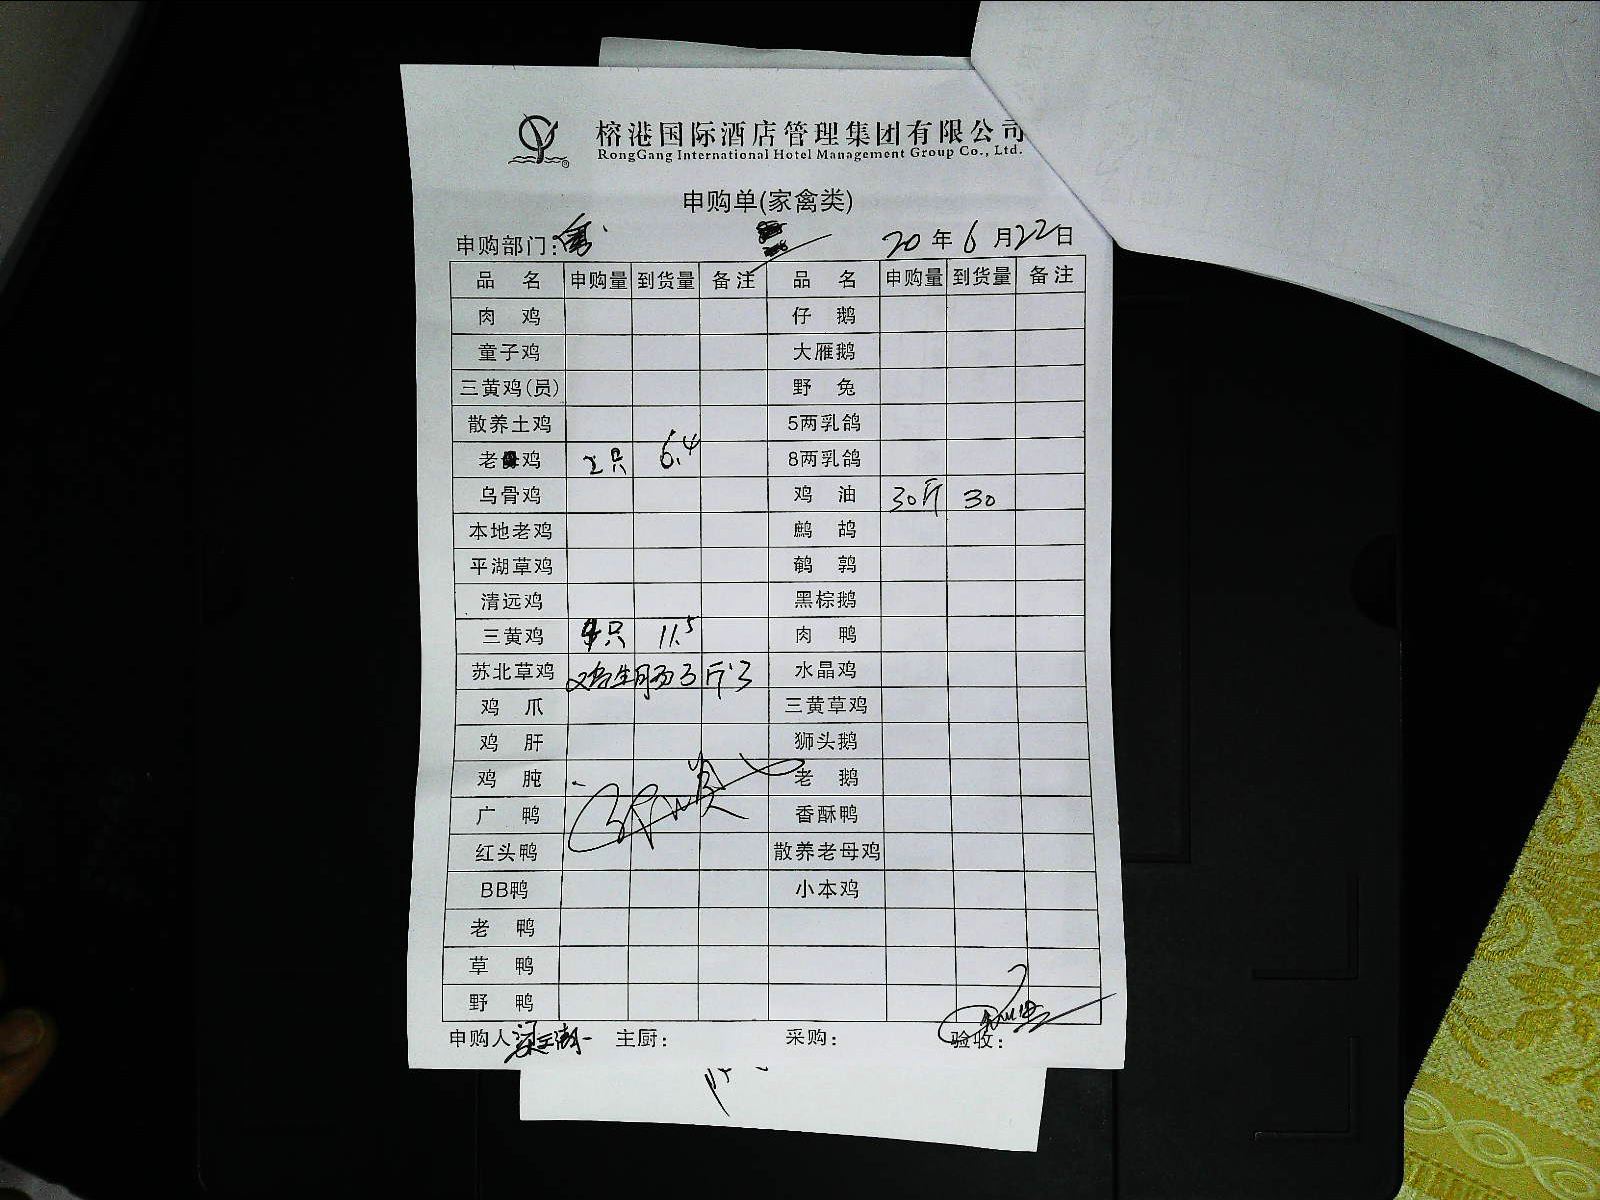 榕港国际酒店管理集团有限公司
RongGang International Hotel Management Group Co., Ltd.
申购单(家禽类)
申购部门: 20年6月22日
品名 申购量 到货量 备注 品名 申购量 到货量 备注
肉鸡 仔鹅
童子鸡 大雁鹅
三黄鸡(员) 野兔
散养土鸡 5两乳鸽
老母鸡 2只 6.4 8两乳鸽
乌骨鸡 鸡油 30斤 30
本地老鸡 鹧鸪
平湖草鸡 鹌鹑
清远鸡 黑棕鹅
三黄鸡 4只 11.5 肉鸭
苏北草鸡 鸡生肠3斤 3 水晶鸡
鸡爪 三黄草鸡
鸡肝 狮头鹅
鸡肫 老鹅
广鸭 香酥鸭
红头鸭 散养老母鸡
BB鸭 小本鸡
老鸭
草鸭
野鸭
申购人 主厨: 采购: 验收: